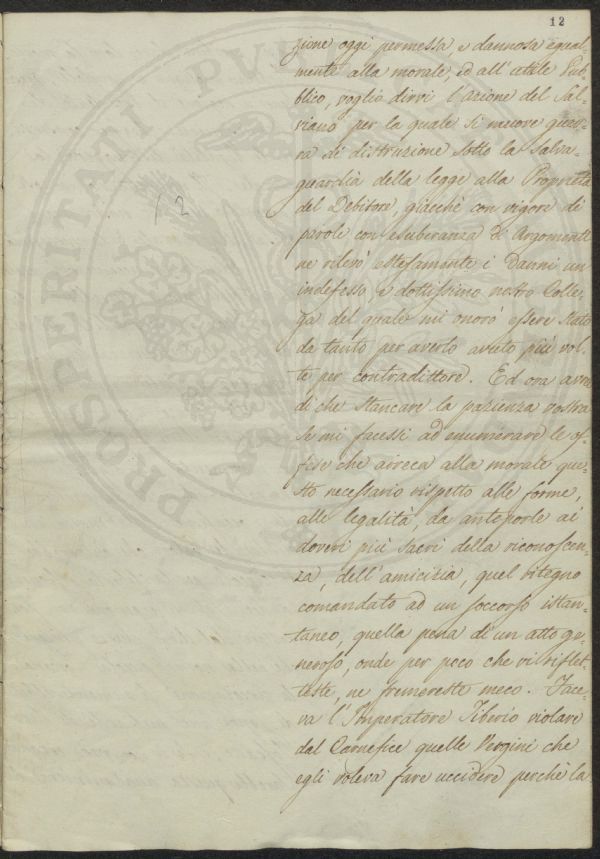 12
zione oggi permessa, e dannosa egual-
mente alla morale, ed all'utile Pub-
blico, voglio dirvi l'azione del Sal-
viano per la quale si muove guer-
ra di distruzione sotto la salva-
guardia della legge alla Proprietà
del Debitore, giacchè con vigore di
parole con esuberanza di Argomenti
ne rilevò estesamente i danni un
indefesso, e dottissimo nostro Colle-
ga del quale mi onorò essere stato
da tanto per averlo avuto più vol-
te per contradittore. Ed ora avrei
di che stancare la pazienza vostra
se mi facessi ad enumerare le of-
fese che arreca alla morale que-
sto necessario rispetto alle forme,
alle legalità, da anteporle ai
doveri più sacri della riconoscen-
za, dell'amicizia, quel ritegno
comandato ad un soccorso istan-
taneo, quella pena di un atto ge-
neroso, onde per poco che vi riflet-
teste, ne fremereste meco. Face-
va l'Imperatore Tiberio violare
dal Carnefice quelle Vergini che
egli voleva fare uccidere perchè la
12
PROSPERITATI PUB